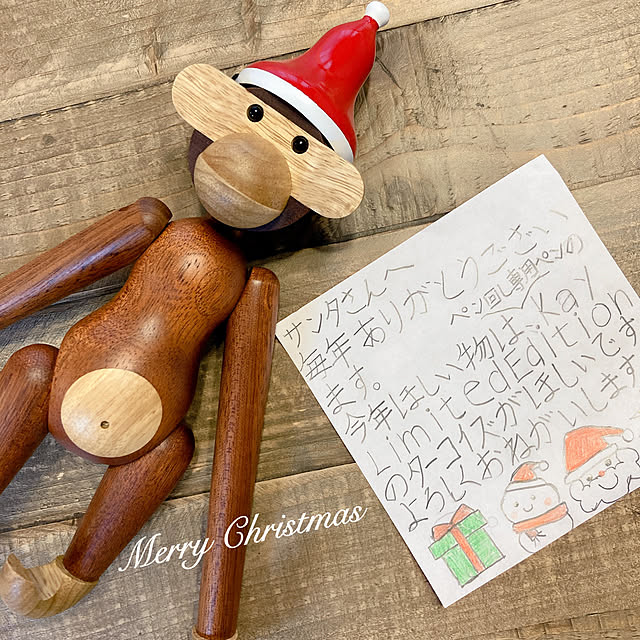 サンタさんへ
毎年ありがとうござい
ます。
ペン回し専用ペンの
今年ほしい物は、Kay
LimitedEdition
のターコイズがほしいです
よろしくおねがいします
Merry Christmas